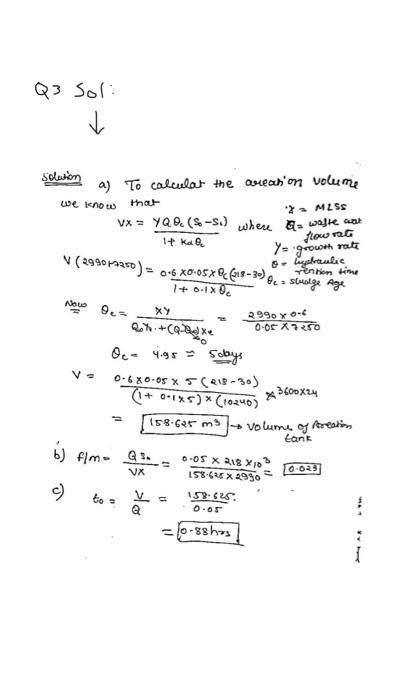 Q3 Sol:
↓
Solution a) To calculat the areation volume
we know that
VX = YQθc (S₀-S₁) / 1+ Kdθc where
x = MLSS
Q = waste wat
flow rate
Y = growth rate
θ = hydraulic
rention time
θc = sludge Age
V (2990+7250) = 0.6x0.05xθc(218-30) / 1+0.1xθc
Now θc = XY = 2990x0.6 / 0.05x7250
θc = 4.95 ≈ 5days
V = 0.6x0.05x5(218-30) / (1+0.1x5)x(10240) x 3600x24
= 158.625 m³ → volume of Areation
tank
b) f/m = QS₀ / VX = 0.05 x 218 x10³ / 158.625x2990 = 0.023
c) t₀ = V / Q = 158.625 / 0.05
= 0.88hrs